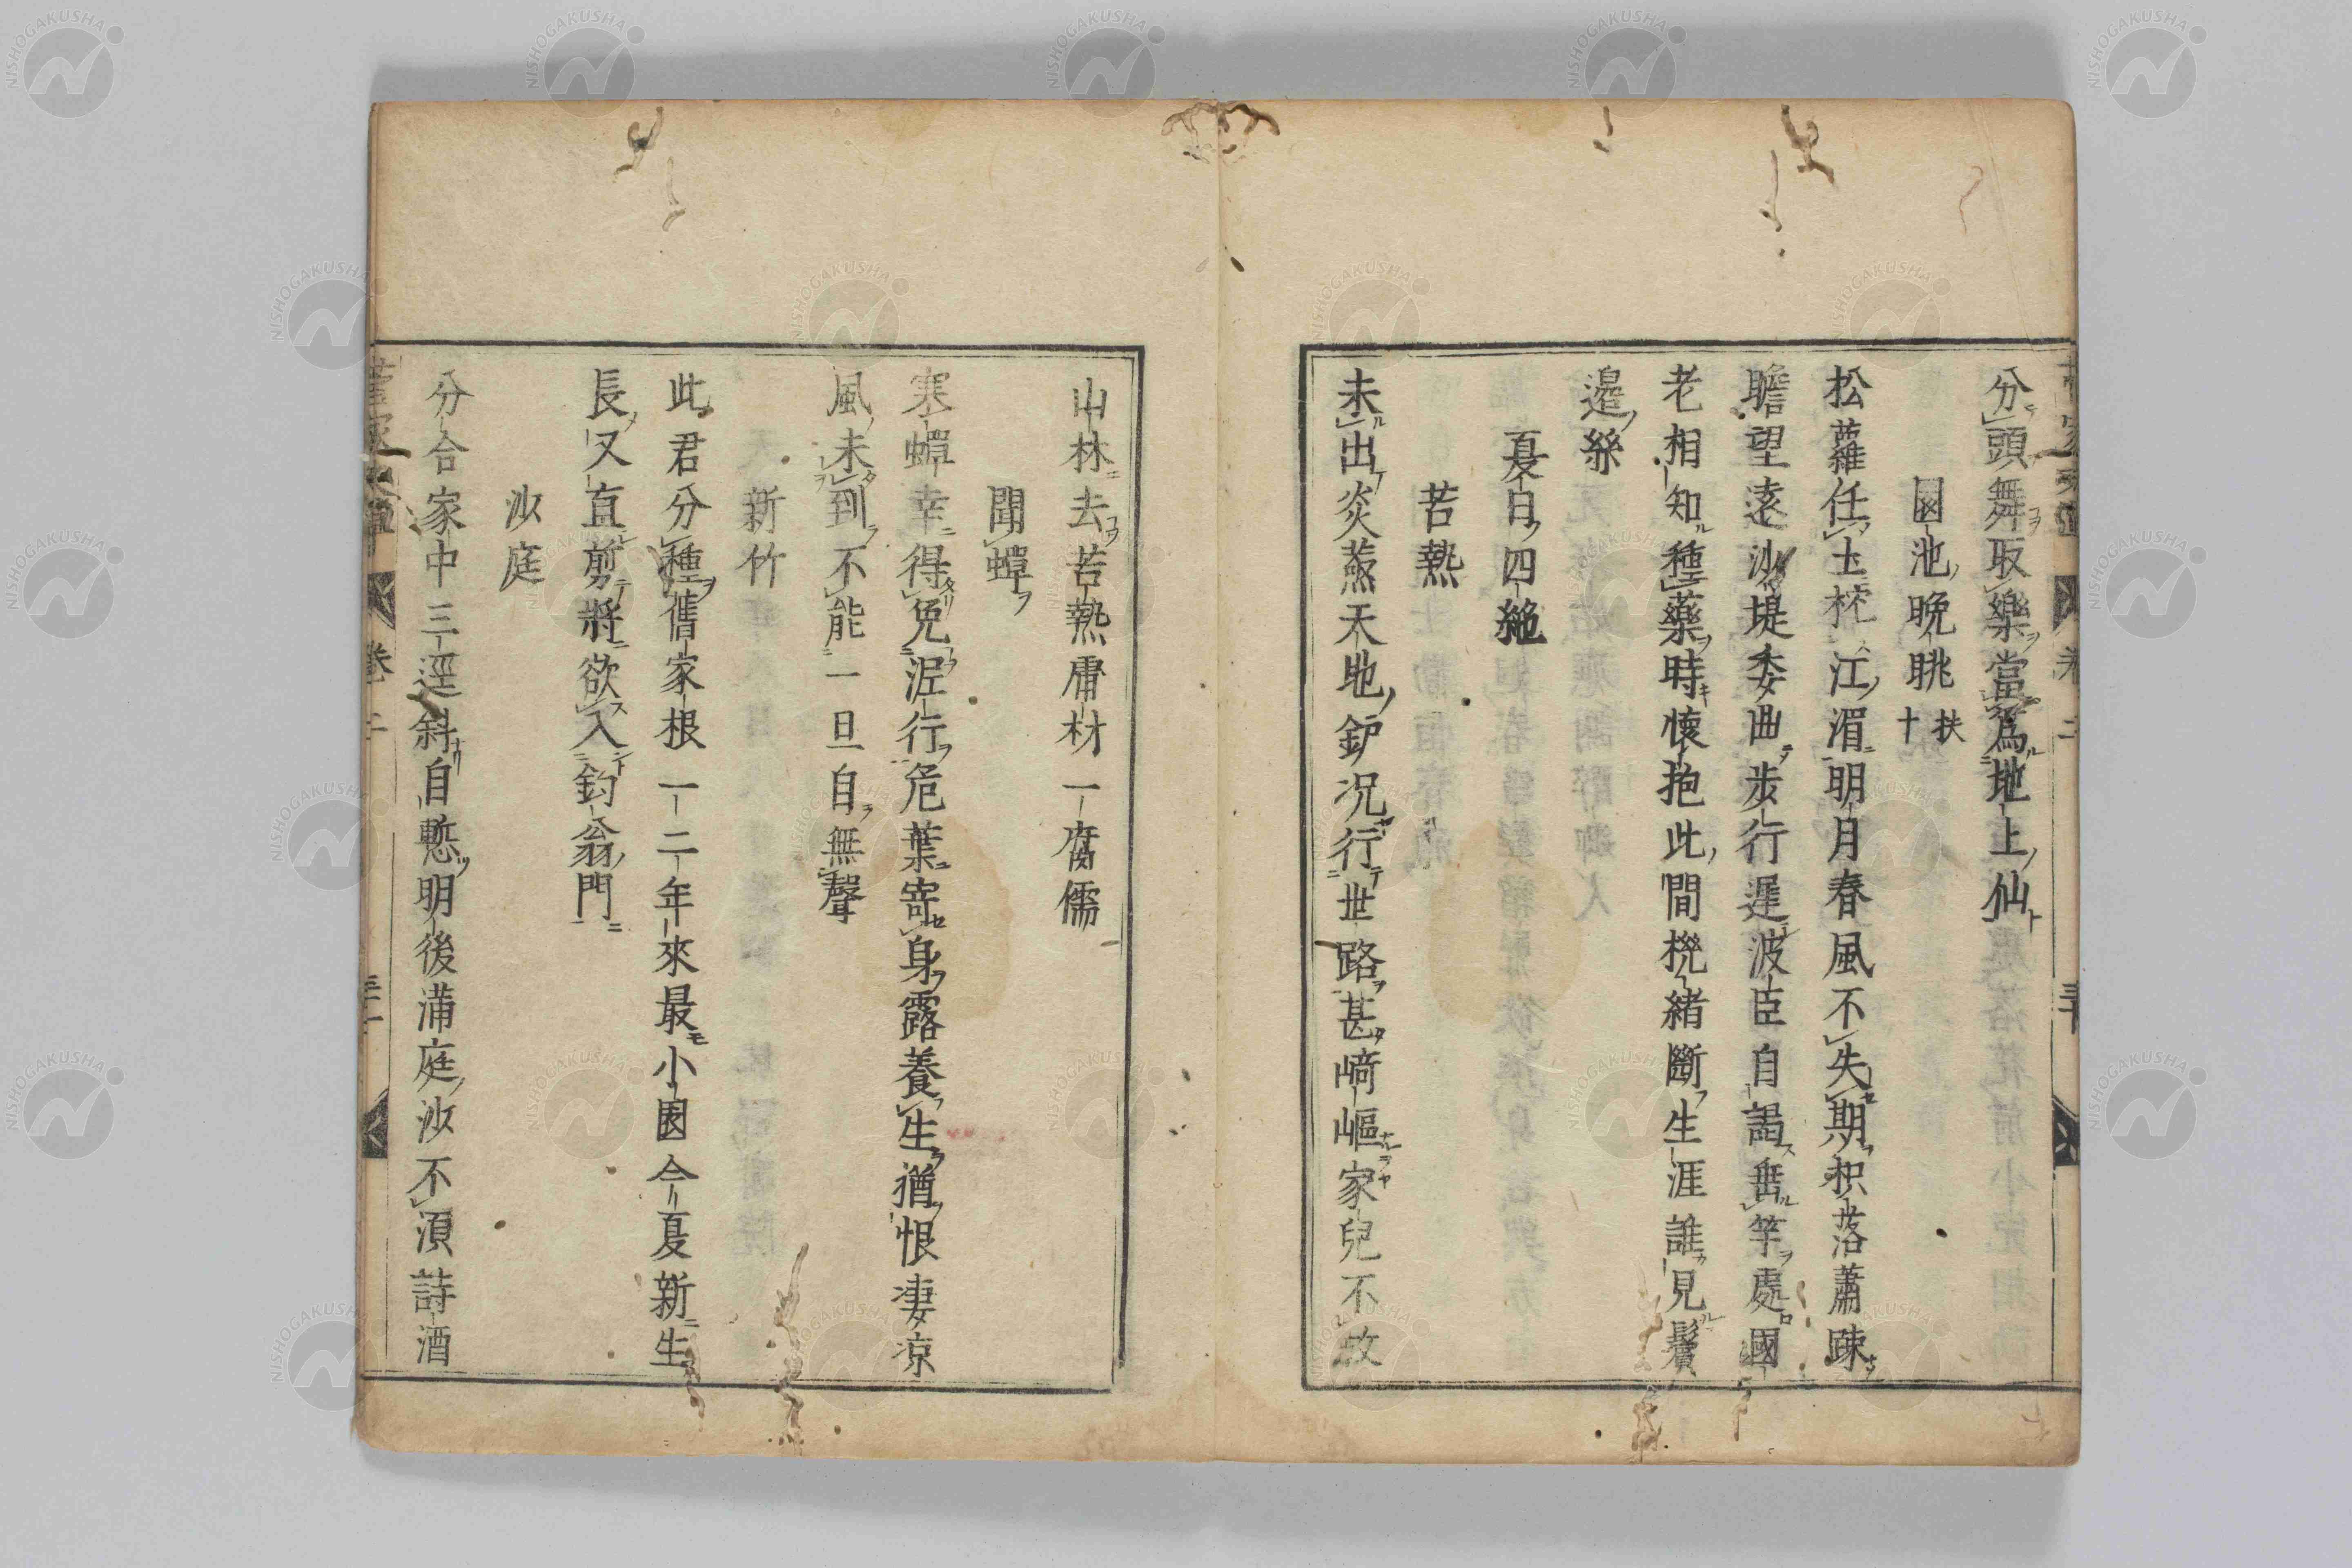 分頭舞取樂當爲地上仙
園池晩眺 扶十
松蘿任土柁江湄明月春風不失期枳落蕭疎
瞻望遠沙堤委曲步行遲波臣自謁垂竿處國
老相知種藥時懷抱此間攪緖斷生涯誰見鬢
邊絲
夏日四絶
苦熱
未出炎蒸天地鈩況行世路甚﨑嶇家兒不放
山林去苦熱庸材一腐儒
聞蟬
寒蟬幸得免泥行危葉寄身露養生猶恨凄凉
風未到不能一旦自無聲
新竹
此君分種舊家根一二年來最小園今夏新生
長又直剪將欲入釣翁門
沙庭
分合家中三逕斜自慙明後滿庭沙不須詩酒